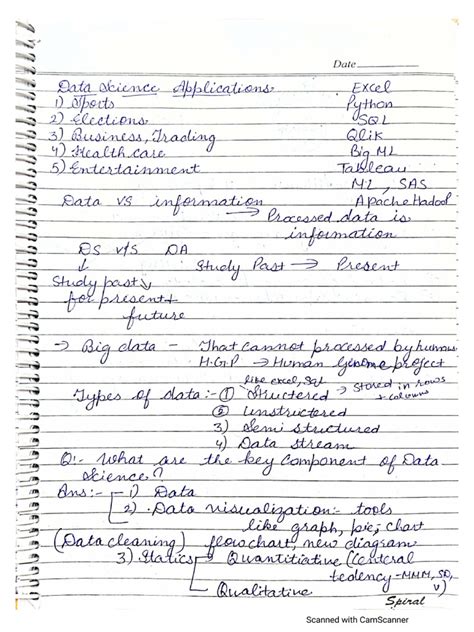 Date
Data Science Applications Excel
1) Sports Python
2) Elections SQL
3) Business, Trading Qlik
4) Health care Big ML
5) Entertainment Tableau
ML, SAS
Data VS information Apache Hadoop
→ Processed data is
information
DS v/s DA
↓ Study Past → Present
Study past
for present +
future
→ Big data - That cannot processed by human
H.G.P → Human Genome project
like excel, SQL
Types of data :- ① Structered → Stored in rows
+ columns
② Unstructered
3) Semi structured
4) Data stream
Q:- What are the key Component of Data
Science?
Ans:- 1) Data
2) Data visualization:- tools
like graph, pie, chart
(Data cleaning) flowchart, new diagram
3) Statics → Quantitiative (Central
tedency - MMM, SD,
V)
Qualitative
Spiral
Scanned with CamScanner